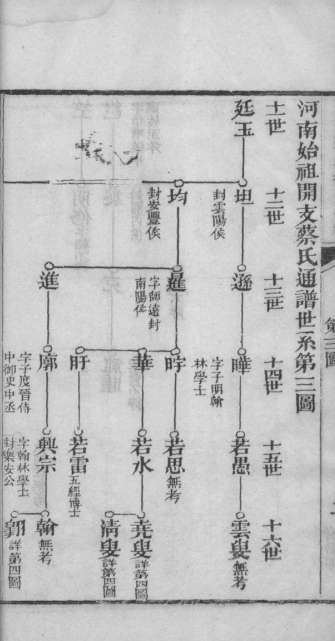 河南始祖開支蔡氏通譜世系第三圖
十一世
十二世
十三世
十四世
十五世
十六世
廷玉
坦
封雲陽侯
遜
曄
字子明翰
林學士
若愚
雲叟
無考
均
封安豐侯
暹
字師遠封
南陽侯
時
若思
無考
華
若水
堯叟
詳第四圖
清叟
詳第四圖
盱
若雷
五經博士
進
廓
字子度晉侍
中御史中丞
興宗
字翰林學士
封樂安公
翰
無考
郢
詳第四圖
第三圖